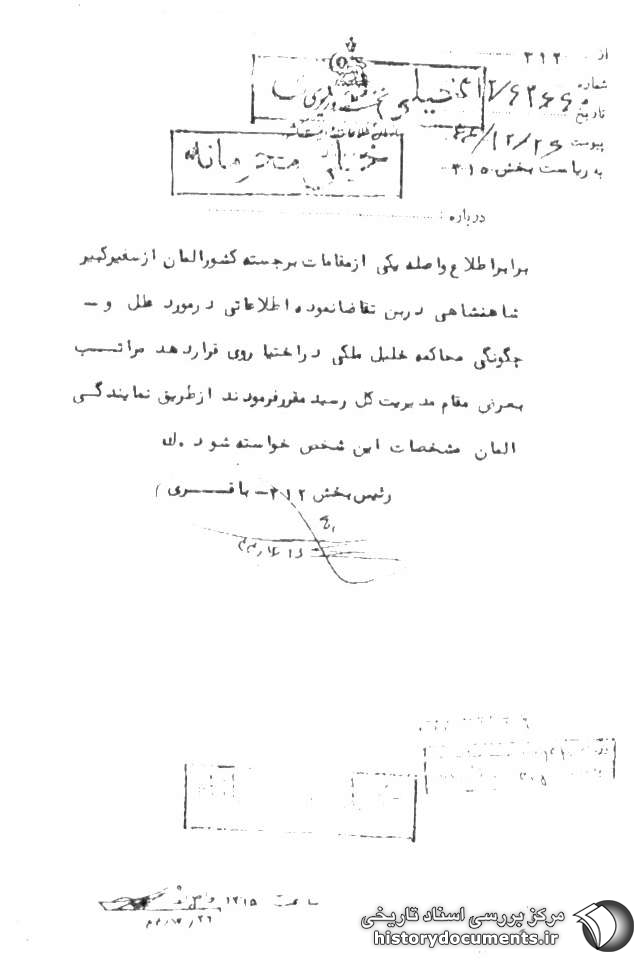 از ۳۱۲
شماره ۳۱۲/۶۲۶۶۰
تاریخ
پیوست ۴۴/۱۲/۲۶
به ریاست بخش ۳۱۵
نخست وزیری
سازمان اطلاعات و امنیت کشور
خیلی محرمانه
درباره :
برابر اطلاع واصله یکی از مقامات برجسته کشور المان از سفیر کبیر
شاهنشاهی در بن تقاضا نموده اطلاعاتی در مورد علل و –
چگونگی محاکمه خلیل ملکی در اختیار وی قرار دهد مراتب
بعرض مقام مدیریت کل رسید مقرر فرمودند از طریق نمایندگی
المان مشخصات این شخص خواسته شود .
رئیس بخش ۳۱۲ – باقری
ساعت ۱۲۱۵
مرکز بررسی اسناد تاریخی
historydocuments.ir